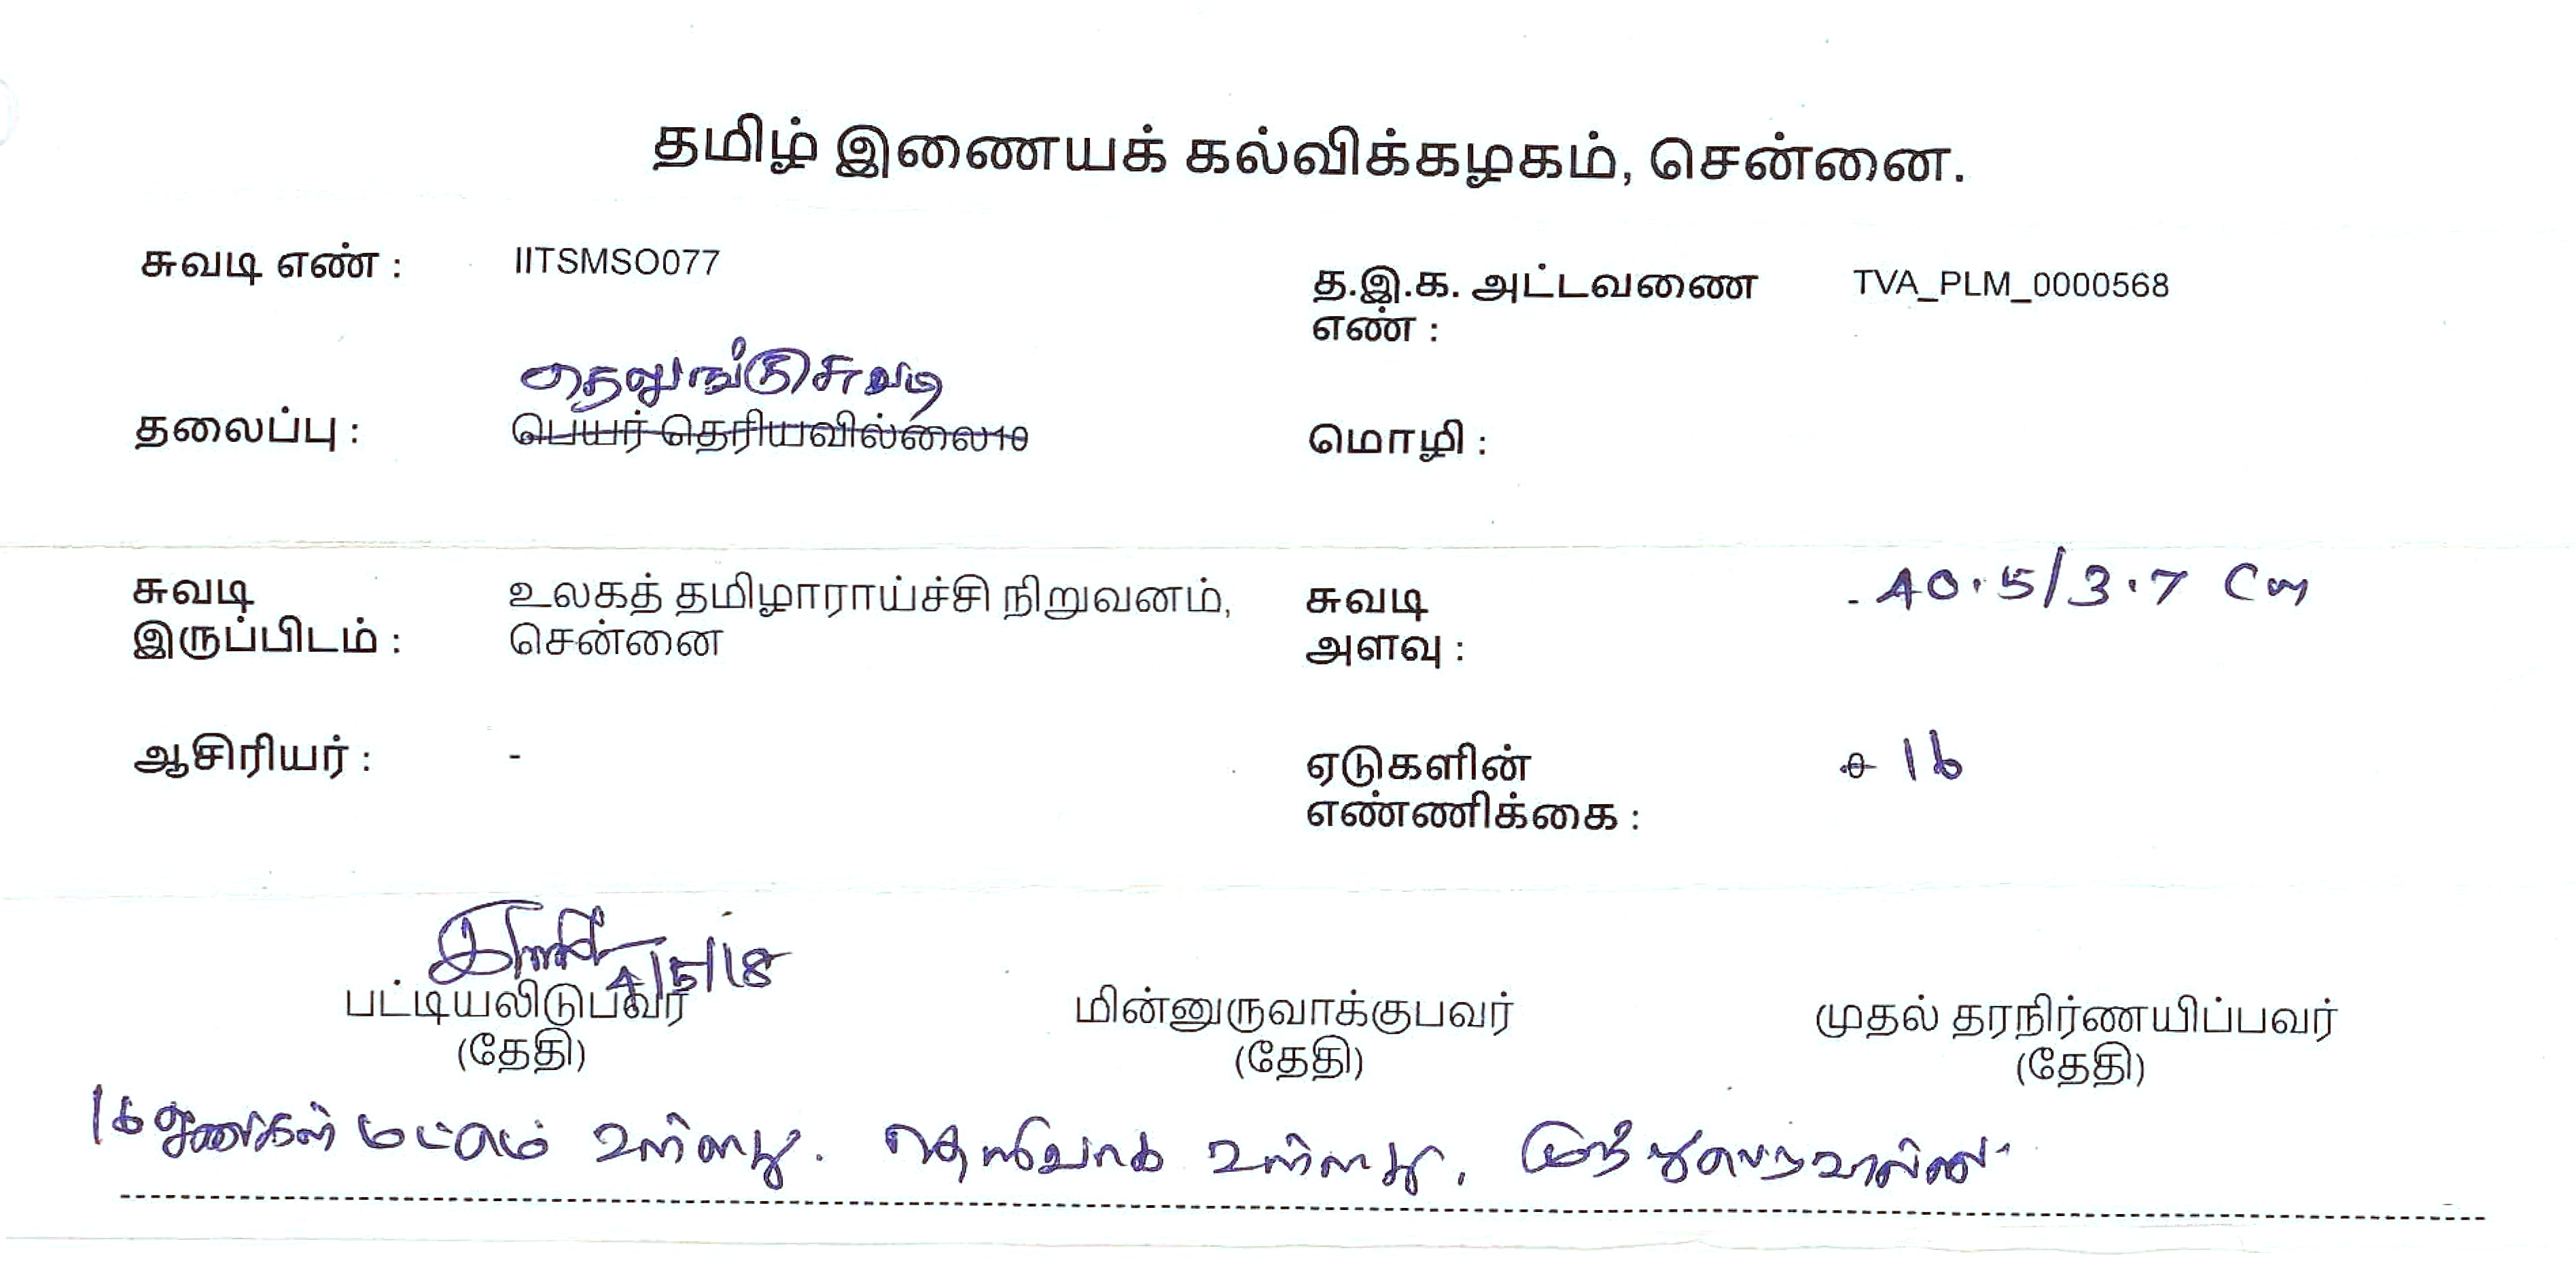 தமிழ் இணையக் கல்விக்கழகம், சென்னை.
சுவடி எண் : IITSMSO077
த.இ.க. அட்டவணை எண் : TVA_PLM_0000568
தெலுங்கு சுவடி
தலைப்பு : பெயர் தெரியவில்லை10
மொழி :
சுவடி இருப்பிடம் : உலகத் தமிழாராய்ச்சி நிறுவனம், சென்னை
சுவடி அளவு : 40.5/3.7 Cm
ஆசிரியர் : -
ஏடுகளின் எண்ணிக்கை : 16
4/5/18
பட்டியலிடுபவர் (தேதி)
மின்னுருவாக்குபவர் (தேதி)
முதல் தரநிர்ணயிப்பவர் (தேதி)
16 மட்டும் உள்ளது. தெளிவாக உள்ளது.